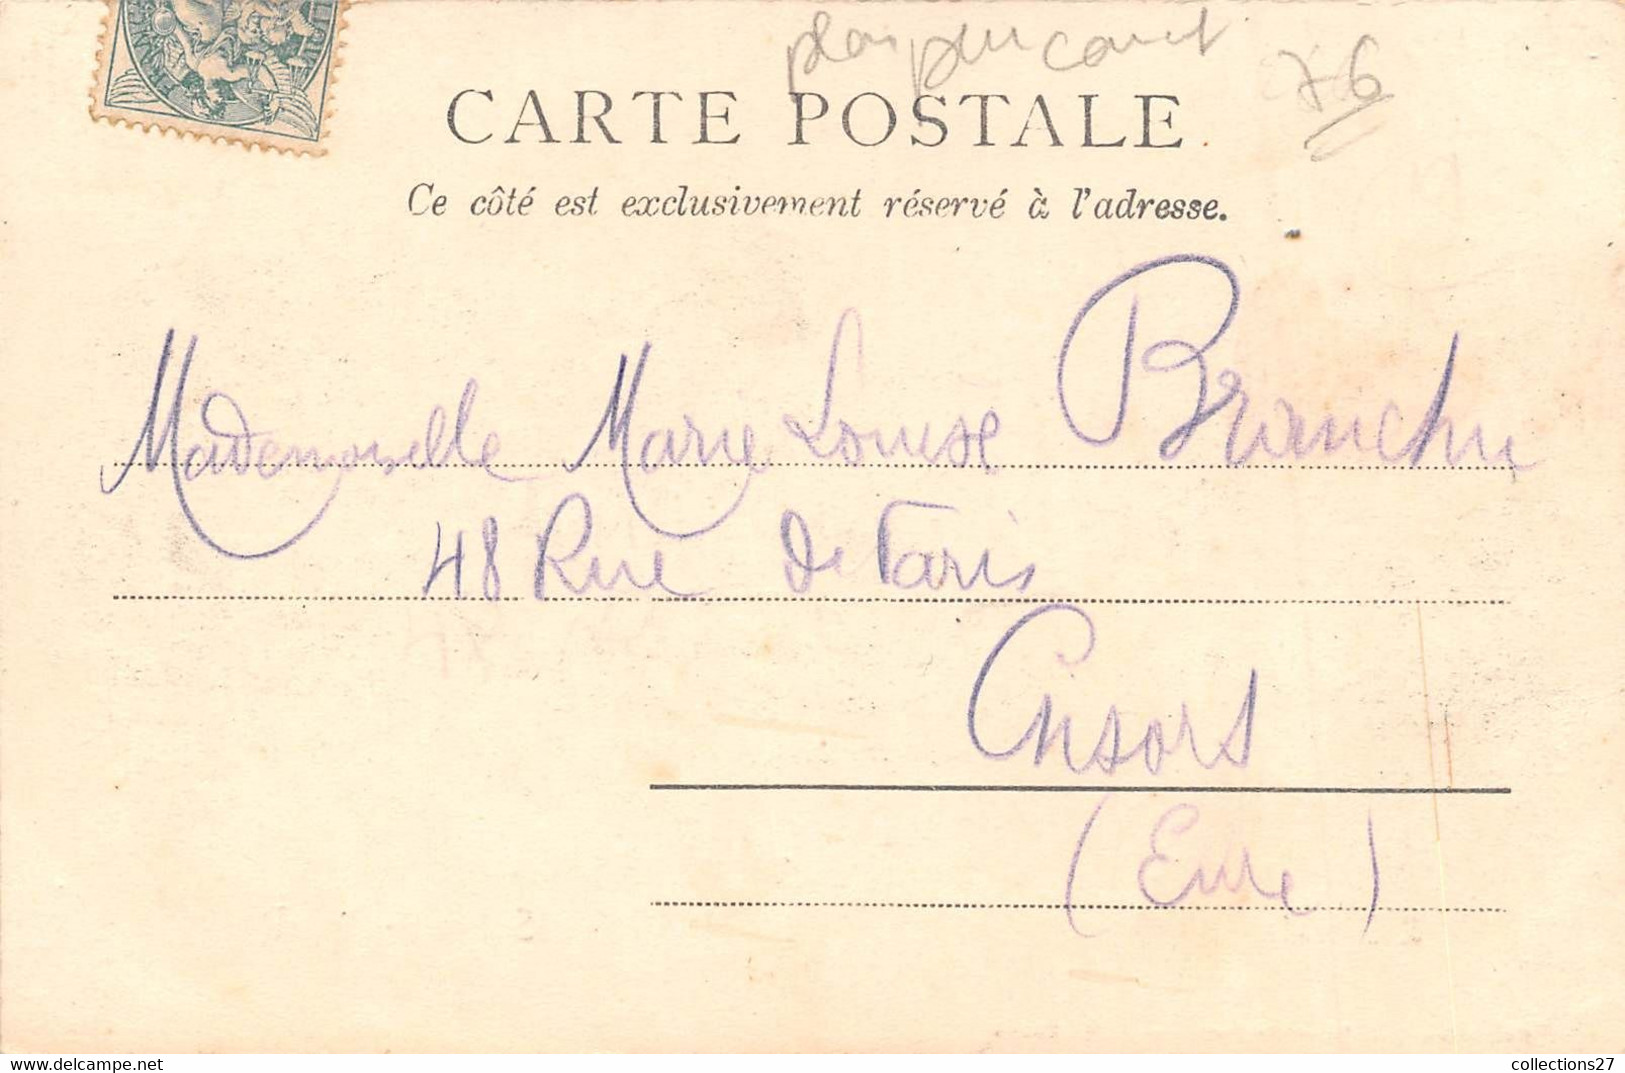 76
CARTE POSTALE
Ce côté est exclusivement réservé à l'adresse.
Mademoiselle Marie Louise Branchu
48 Rue de Paris
Gisors
(Eure)
www.delcampe.net
collections27